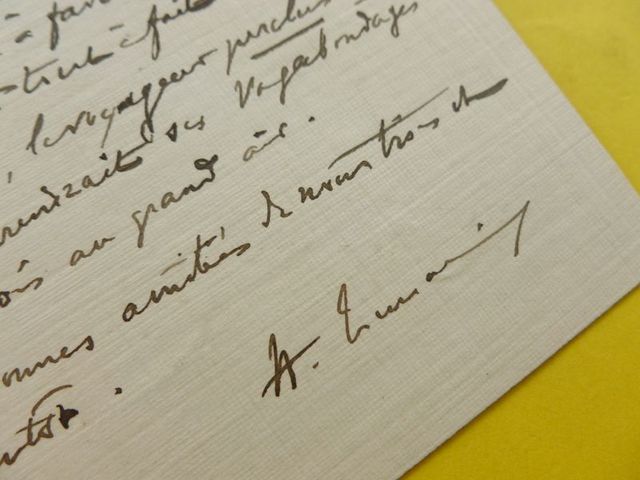 à
tout à fait
le voyageur perclus
rendrait ses vagabondages
au grand air.
onnes amitiés de nous trois et
A.